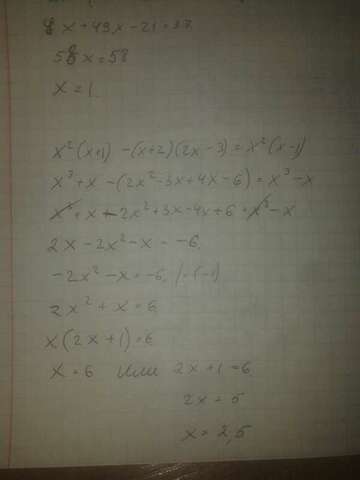 x + 49x - 21 = 37
58x = 58
x = 1
x²(x+1) - (x+2)(2x-3) = x²(x-1)
x³ + x - (2x² - 3x + 4x - 6) = x³ - x
x³ + x - 2x² + 3x - 4x + 6 = x³ - x
2x - 2x² - x = -6
-2x² - x = -6 /·(-1)
2x² + x = 6
x(2x+1) = 6
x = 6 или 2x + 1 = 6
2x = 5
x = 2,5